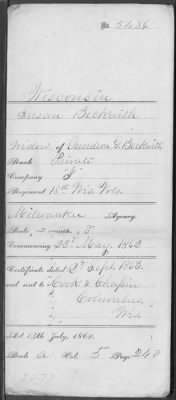 No. 5486
Wisconsin
Susan Beckwith
Widow of G. Beckwith
Rank Private
Company
Regiment 18th Wis Vols.
Milwaukee Agency.
Rate, per month,
Commencing 23d May, 1862.
Certificate dated Sept. 1863.
and sent to Cook & Chapin
Columbus,
Wis.
Act 14th July, 1862.
Book A Vol. 5 Page 248